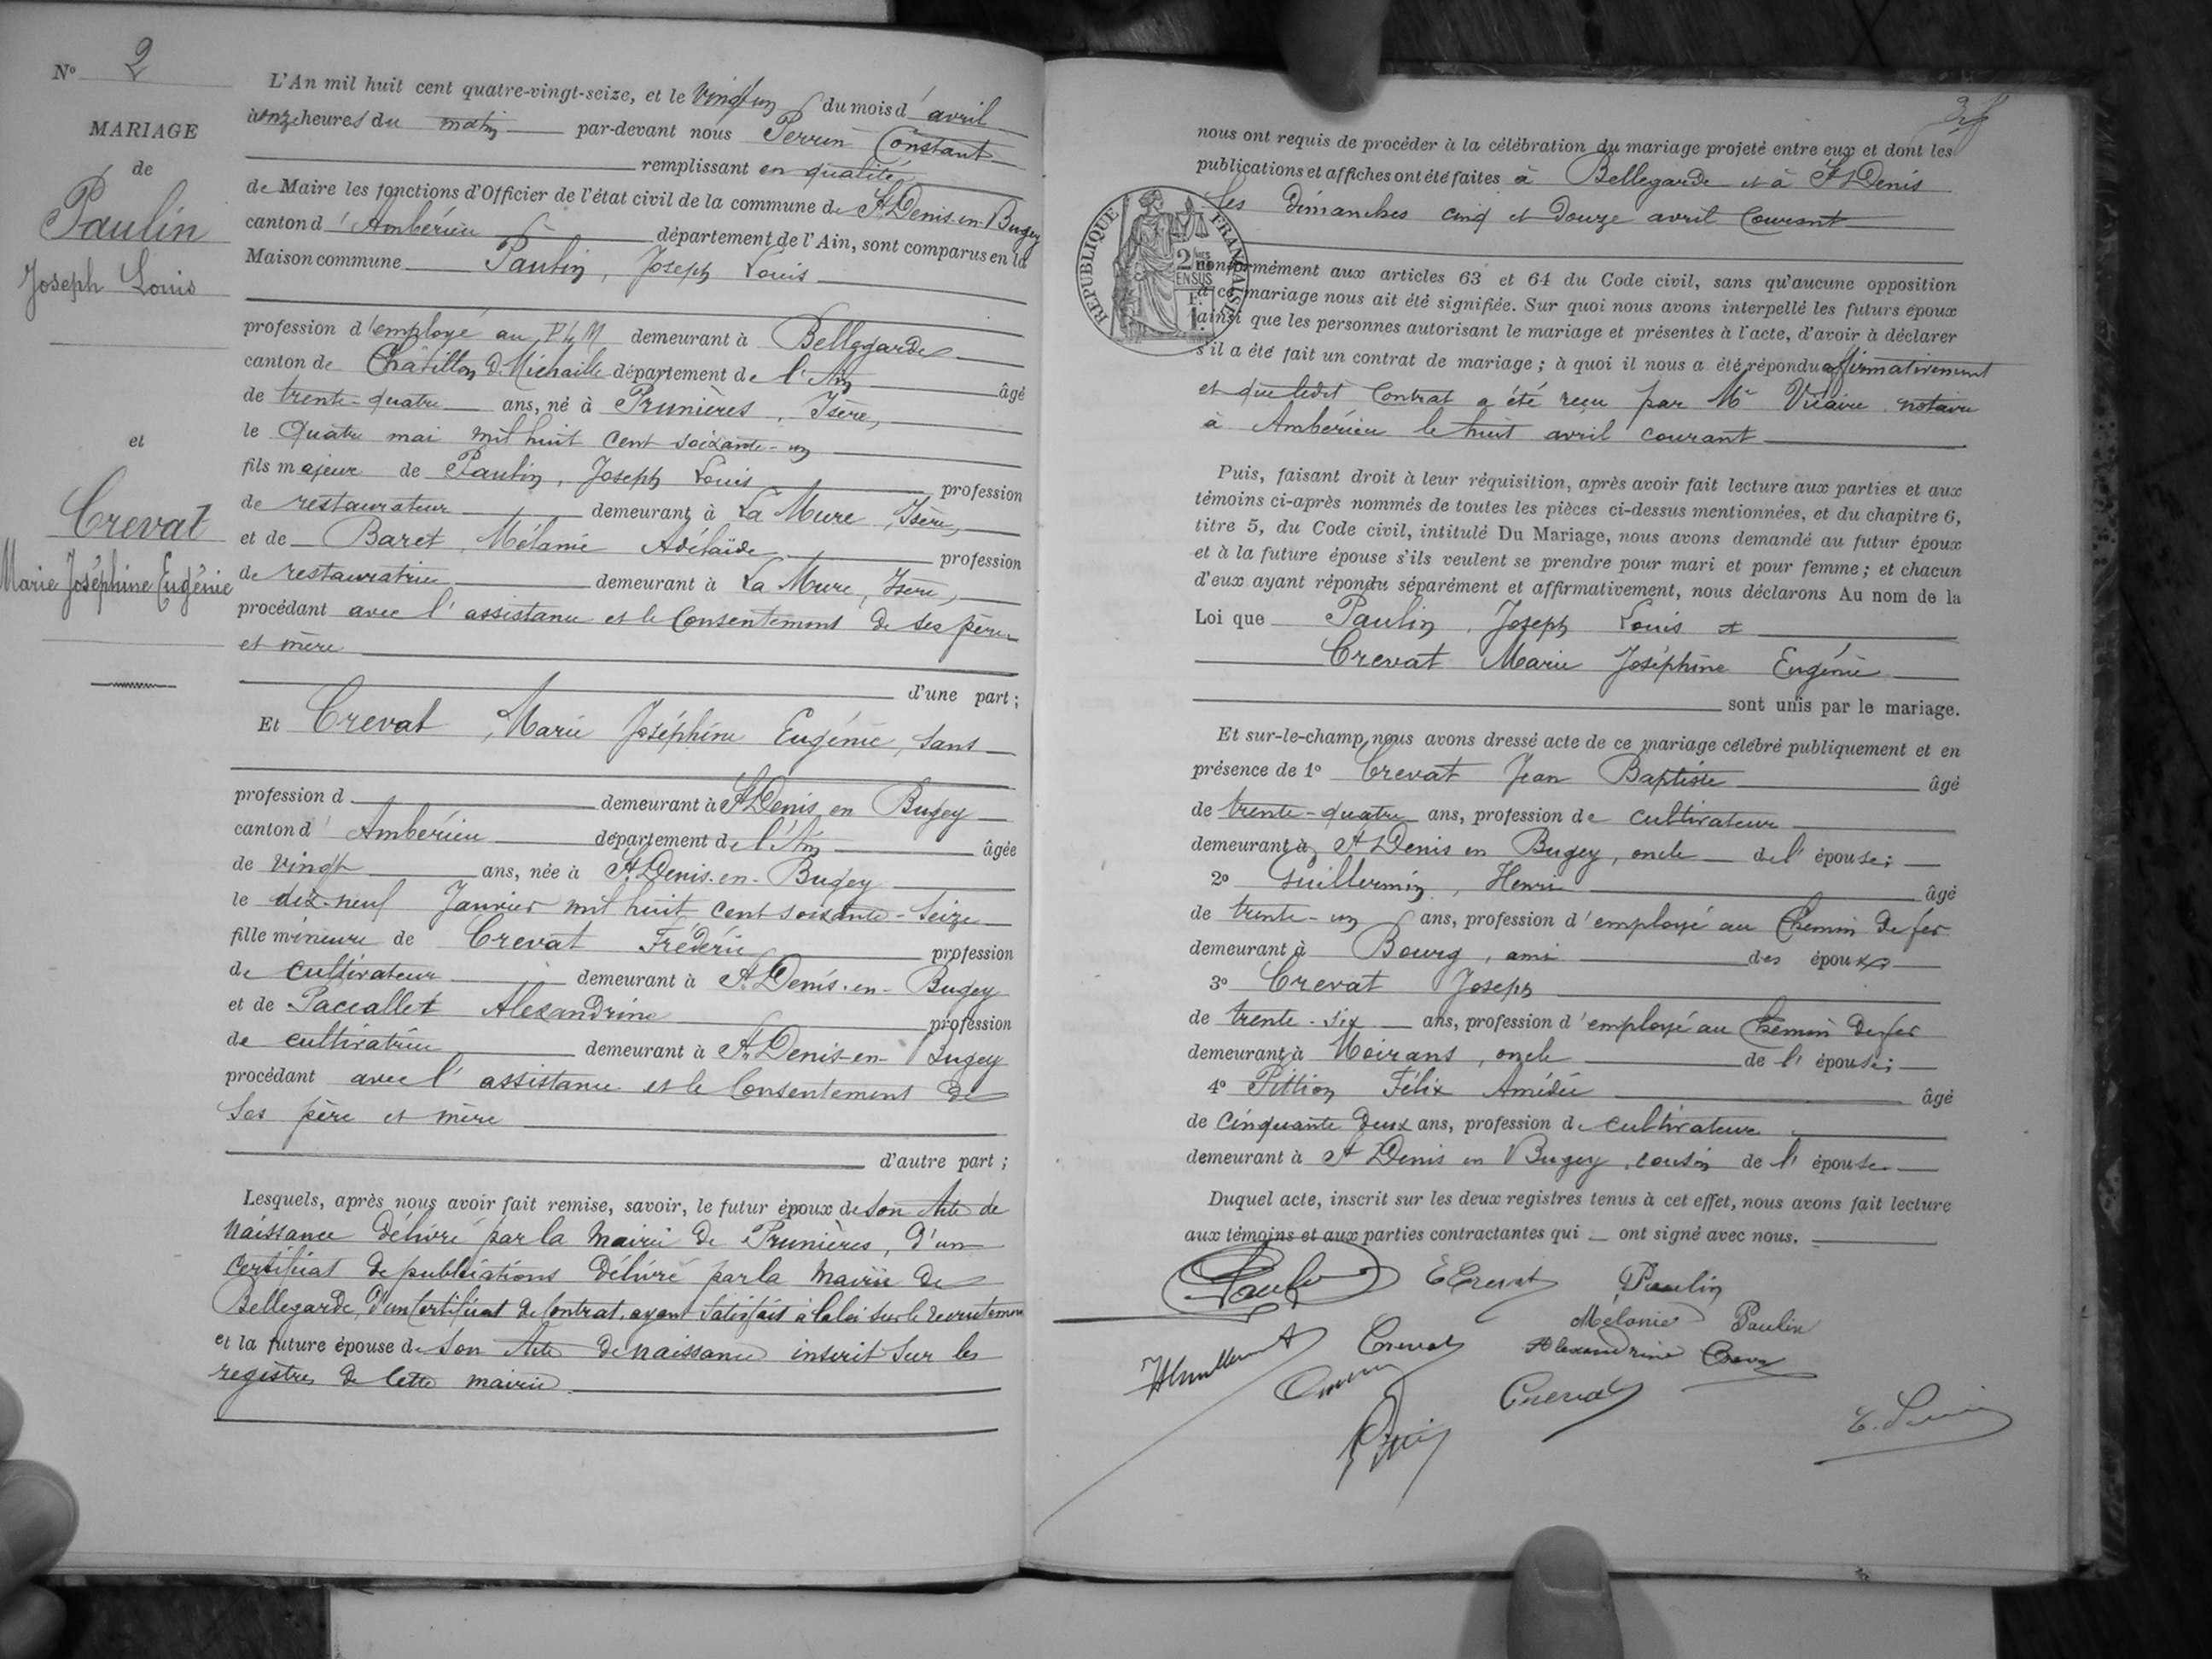 N° 2
MARIAGE
de
Paulin
Joseph Louis
et
Crevat
Marie Joséphine Eugénie
L'An mil huit cent quatre-vingt-seize, et le vingt un du mois d'avril
à onze heures du matin par-devant nous Perrin Constant
remplissant en qualité
de Maire les fonctions d'Officier de l'état civil de la commune de St Denis-en-Bugey
canton d'Ambérieu département de l'Ain, sont comparus en la
Maison commune Paulin, Joseph Louis
profession d'employé au P.L.M demeurant à Bellegarde
canton de Chatillon de Michaille département de l'Ain âgé
de trente-quatre ans, né à Prunières, Isère,
le quatre mai mil huit cent soixante-un
fils majeur de Paulin, Joseph Louis profession
de restaurateur demeurant à La Mure, Isère,
et de Baret, Mélanie Adélaïde, profession
de restauratrice demeurant à La Mure, Isère,
procédant avec l'assistance et le consentement de ses père
et mère
d'une part;
Et Crevat, Marie Joséphine Eugénie, sans
profession d demeurant à St Denis en Bugey
canton d'Ambérieu département de l'Ain âgée
de vingt ans, née à St Denis-en-Bugey
le dix-neuf Janvier mil huit cent soixante-seize
fille mineure de Crevat Frédéric profession
de cultivateur demeurant à St Denis-en-Bugey
et de Paccallet Alexandrine profession
de cultivatrice demeurant à St Denis-en-Bugey
procédant avec l'assistance et le consentement de
ses père et mère
d'autre part;
Lesquels, après nous avoir fait remise, savoir, le futur époux de son Acte de
naissance délivré par la mairie de Prunières, d'un
certificat de publications délivré par la mairie de
Bellegarde, d'un certificat de contrat, ayant satisfait à la loi sur le recrutement
et la future épouse de son Acte de naissance inscrit sur les
registres de cette mairie.
nous ont requis de procéder à la célébration du mariage projeté entre eux et dont les
publications et affiches ont été faites à Bellegarde et à St Denis
les dimanches cinq et douze avril courant
RÉPUBLIQUE FRANÇAISE
conformément aux articles 63 et 64 du Code civil, sans qu'aucune opposition
à ce mariage nous ait été signifiée. Sur quoi nous avons interpellé les futurs époux
ainsi que les personnes autorisant le mariage et présentes à l'acte, d'avoir à déclarer
s'il a été fait un contrat de mariage; à quoi il nous a été répondu affirmativement
et que ledit contrat a été reçu par Me Vicaire notaire
à Ambérieu le huit avril courant
Puis, faisant droit à leur réquisition, après avoir fait lecture aux parties et aux
témoins ci-après nommés de toutes les pièces ci-dessus mentionnées, et du chapitre 6,
titre 5, du Code civil, intitulé Du Mariage, nous avons demandé au futur époux
et à la future épouse s'ils veulent se prendre pour mari et pour femme; et chacun
d'eux ayant répondu séparément et affirmativement, nous déclarons Au nom de la
Loi que Paulin, Joseph Louis et
Crevat Marie Joséphine Eugénie
sont unis par le mariage.
Et sur-le-champ, nous avons dressé acte de ce mariage célébré publiquement et en
présence de 1° Crevat Jean Baptiste âgé
de trente-quatre ans, profession de cultivateur
demeurant à St Denis en Bugey, oncle de l'épouse;
2° Guillermin, Henri âgé
de trente-un ans, profession d'employé au Chemin de fer
demeurant à Bourg, ami des époux
3° Crevat Joseph
de trente-six ans, profession d'employé au Chemin de fer
demeurant à Moirans, oncle de l'épouse;
4° Pittion Félix Amédée âgé
de cinquante deux ans, profession de cultivateur
demeurant à St Denis en Bugey, cousin de l'épouse.
Duquel acte, inscrit sur les deux registres tenus à cet effet, nous avons fait lecture
aux témoins et aux parties contractantes qui ont signé avec nous.
E Crevat Paulin
Mélanie Paulin
Crevat Alexandrine
Crevat